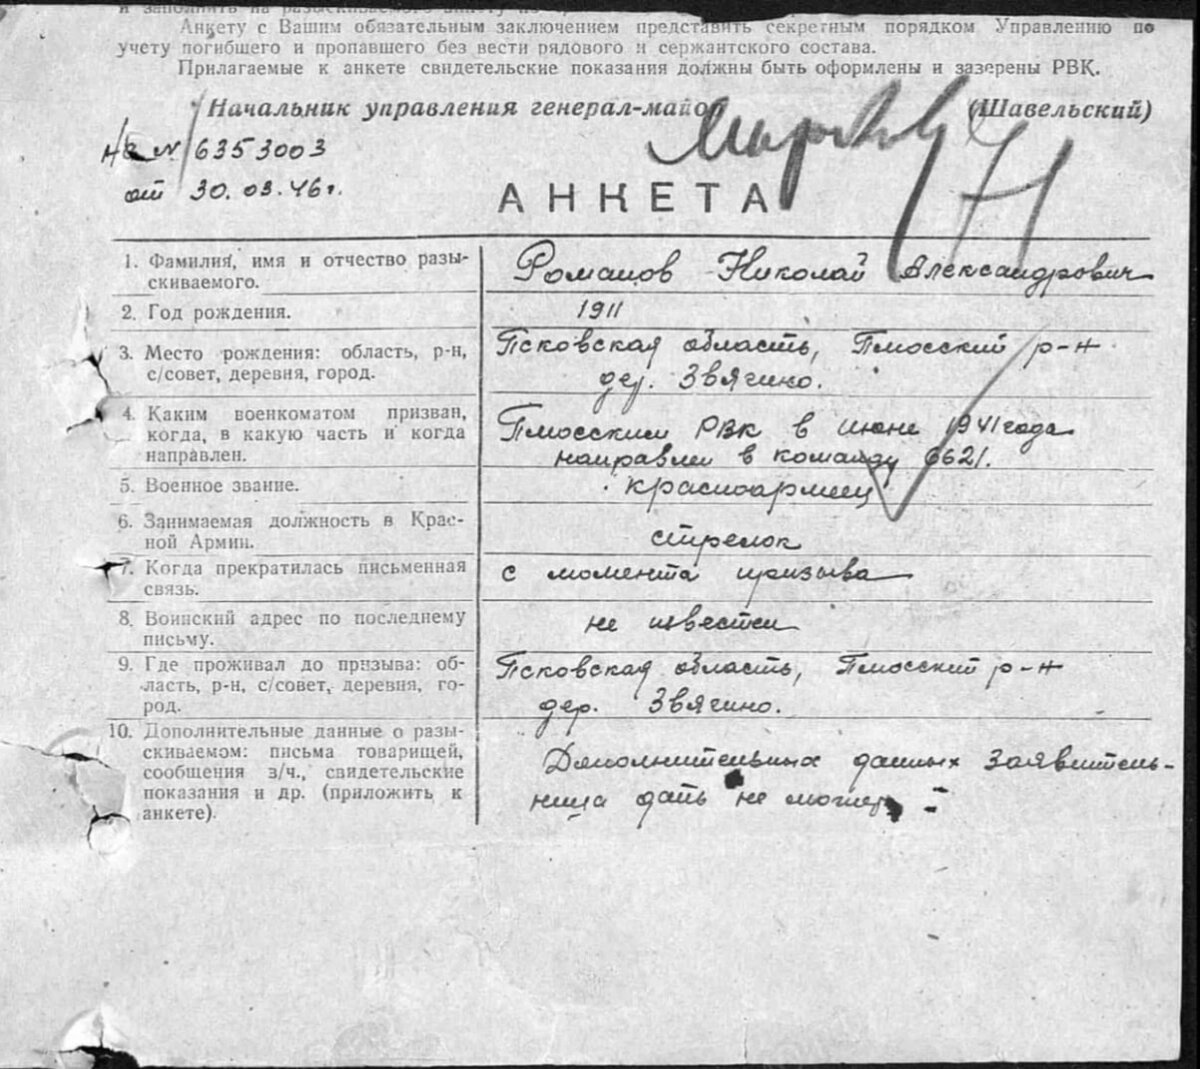 и заполнить на разыскиваемого анкету
Анкету с Вашим обязательным заключением представить секретным порядком Управлению по
учету погибшего и пропавшего без вести рядового и сержантского состава.
Прилагаемые к анкете свидетельские показания должны быть оформлены и заверены РВК.
Начальник управления генерал-майор (Шавельский)
На № 6353003
от 30.03.46г.
АНКЕТА
1. Фамилия, имя и отчество разы-
скиваемого.
Романов Николай Александрович
2. Год рождения.
1911
3. Место рождения: область, р-н,
с/совет, деревня, город.
Псковская область, Плюсский р-н
дер. Звягино.
4. Каким военкоматом призван,
когда, в какую часть и когда
направлен.
Плюсским РВК в июне 1941 года
направлен в команду 6621.
5. Военное звание.
красноармеец
6. Занимаемая должность в Крас-
ной Армии.
стрелок
7. Когда прекратилась письменная
связь.
с момента призыва
8. Воинский адрес по последнему
письму.
не известен
9. Где проживал до призыва: об-
ласть, р-н, с/совет, деревня, го-
род.
Псковская область, Плюсский р-н
дер. Звягино.
10. Дополнительные данные о разы-
скиваемом: письма товарищей,
сообщения з/ч., свидетельские
показания и др. (приложить к
анкете).
Дополнительных данных заявитель-
ница дать не может